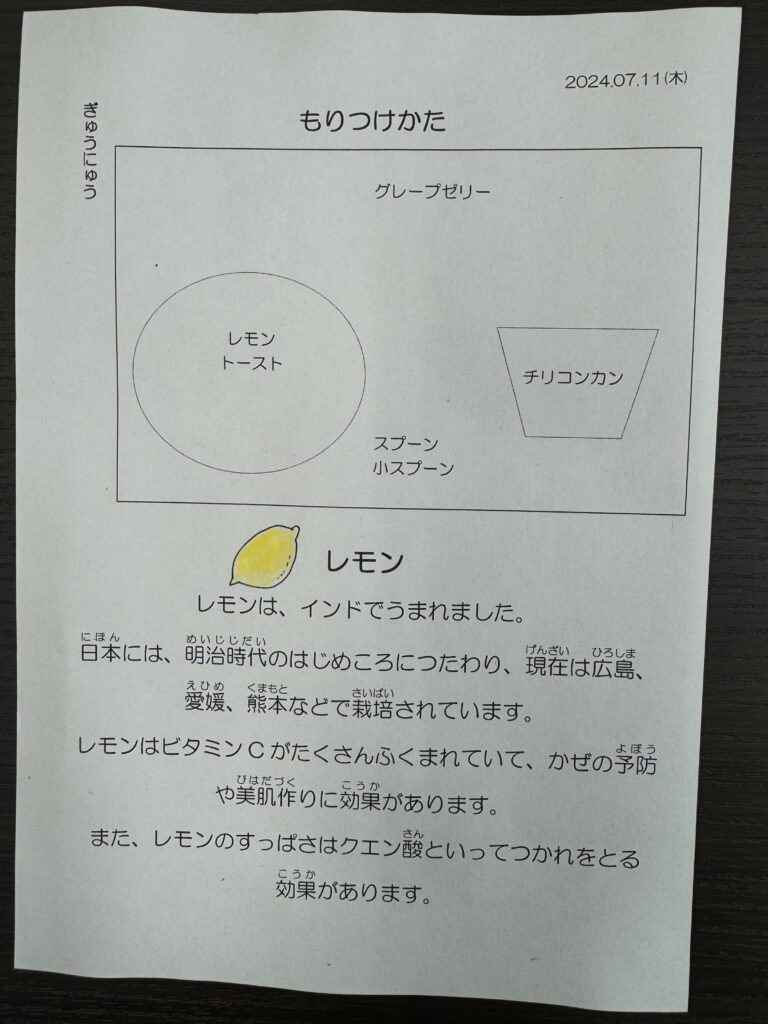 2024.07.11(木)
もりつけかた
ぎゅうにゅう
グレープゼリー
レモン
トースト
チリコンカン
スプーン
小スプーン
レモン
レモンは、インドでうまれました。
にほん めいじじだい げんざい ひろしま
日本には、明治時代のはじめころにつたわり、現在は広島、
えひめ くまもと さいばい
愛媛、熊本などで栽培されています。
よぼう
レモンはビタミンCがたくさんふくまれていて、かぜの予防
びはだづく こうか
や美肌作りに効果があります。
さん
また、レモンのすっぱさはクエン酸といってつかれをとる
こうか
効果があります。